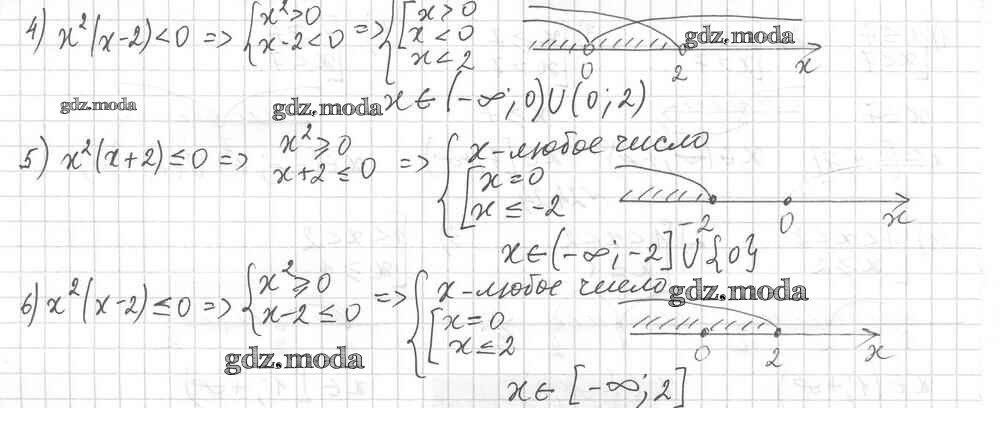 4) x²(x-2)<0 => { x²>0 => { [ x>0
x-2<0 x<0
x<2
0 2 x
gdz.moda
gdz.moda gdz.moda x ∈ (-∞; 0)∪(0; 2)
5) x²(x+2)≤0 => x²≥0 => { x-любое число
x+2≤0 [ x=0
x≤-2
-2 0 x
x∈(-∞; -2]∪{0}
6) x²(x-2)≤0 => { x²≥0 => { x-любое число
x-2≤0 [ x=0
x≤2
gdz.moda
0 2 x
gdz.moda
x∈[-∞; 2]